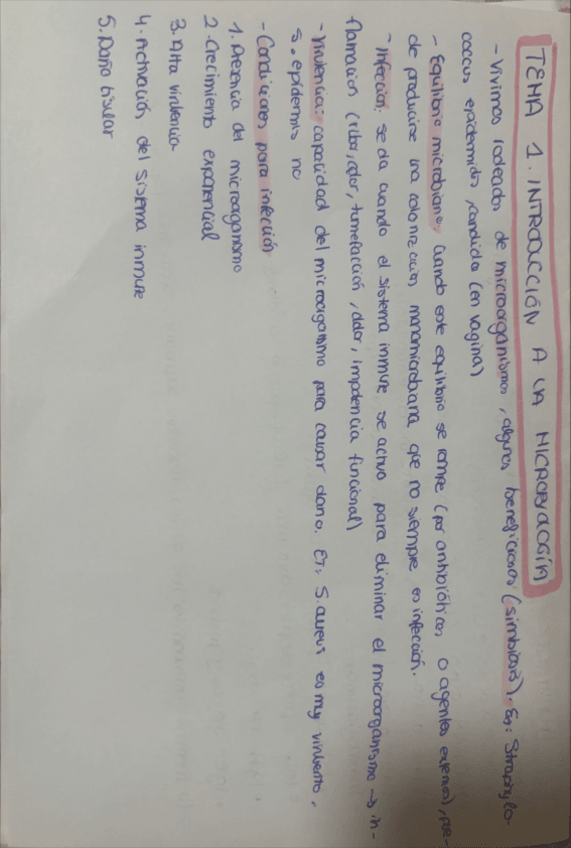 TEMA 1. INTRODUCCIÓN A LA MICROBIOLOGÍA
- Vivimos rodeados de microorganismos, algunos beneficiosos (simbiosis). Ej: Straphylo-
coccus epidermidis, candida (en vagina)
- Equilibrio microbiano: cuando este equilibrio se rompe (por antibióticos o agentes externos), pue-
de producirse una colonización monomicrobiana que no siempre es infección.
- Infección: se da cuando el sistema inmune se activa para eliminar el microorganismo → in-
flamación (rubor, calor, tumefacción, dolor, impotencia funcional)
- Virulencia: capacidad del microorganismo para causar daño. Ej: S. aureus es muy virulento,
S. epidermis no
- Condiciones para infección
1. Presencia del microorganismo
2. Crecimiento exponencial
3. Alta virulencia
4. Activación del sistema inmune
5. Daño tisular